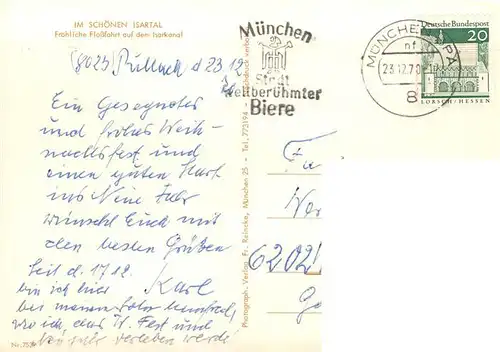 IM SCHÖNEN ISARTAL
Fröhliche Floßfahrt auf dem Isarkanal
8023 Pullach d 23.12
Ein Gesegnetes
und frohes Weih-
nachtsfest und
einen guten Start
ins Neue Jahr
wünscht Euch mit
den besten Grüßen
Karl
Seit d. 17.12.
bin ich hier
bei meinem
wo ich das W. Fest und
Neujahr verleben werde
Nr. 757
Photograph. Verlag Fr. Reinicke, München 25 - Tel. 773194
München
Stadt
weltberühmter
Biere
MÜNCHEN
23.12.70
8
Deutsche Bundespost
20
LORSCH/HESSEN
6202